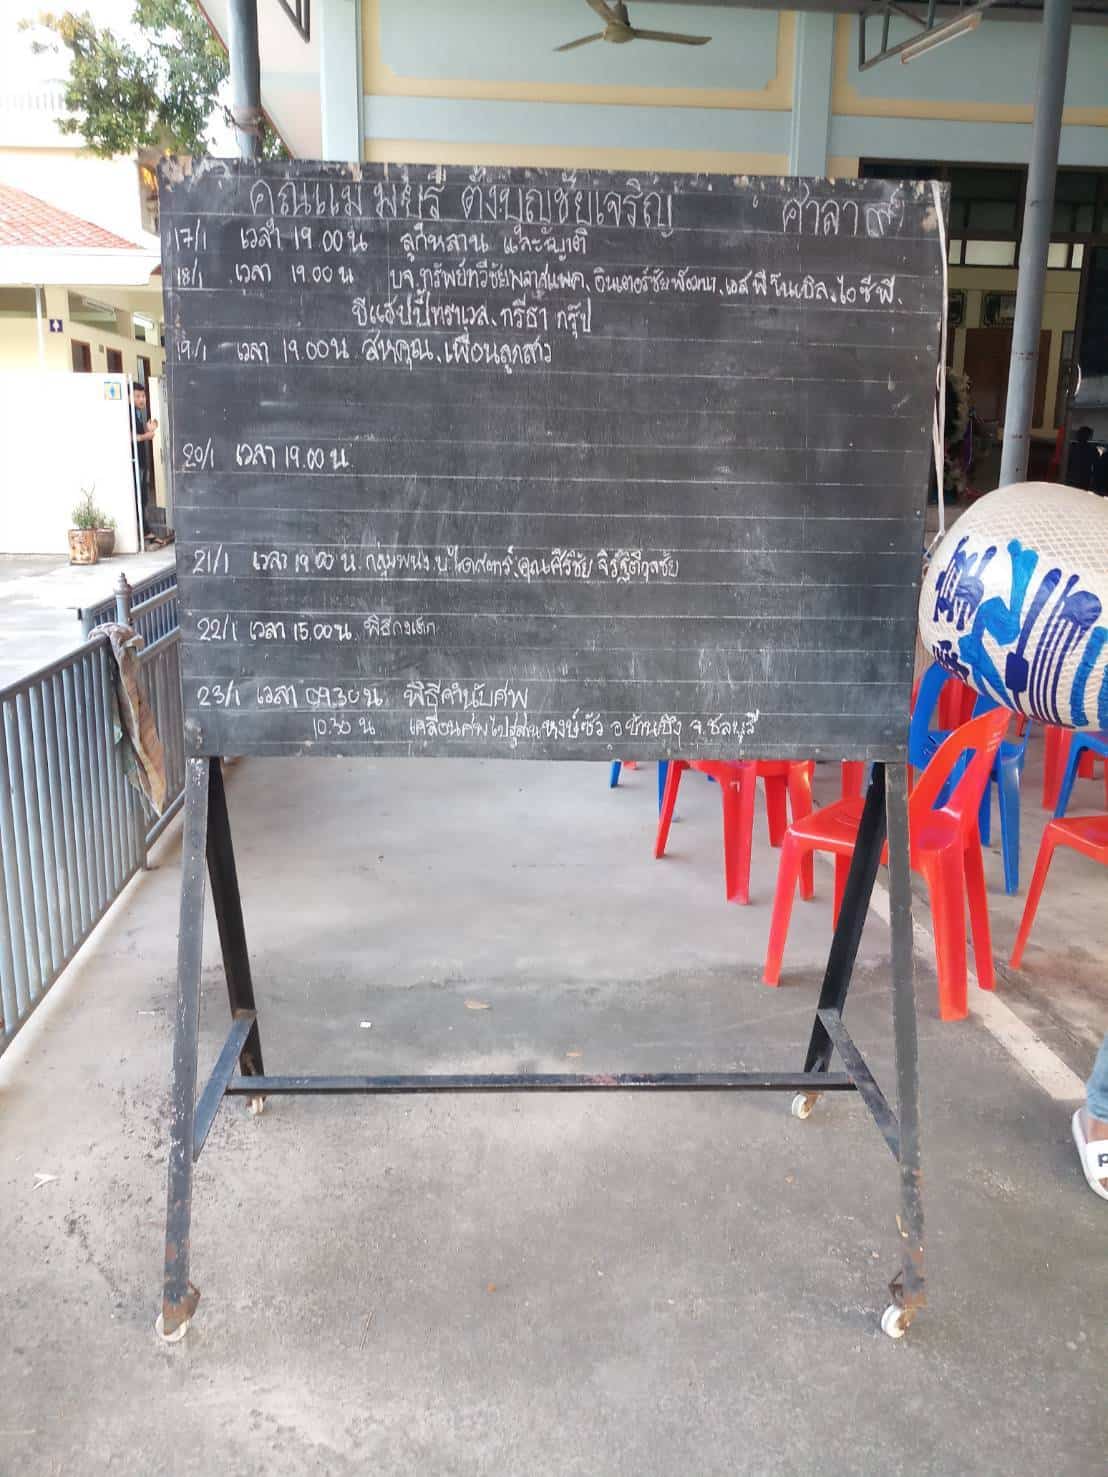 คุณแม่ มยุรี ตั้งบุญชัยเจริญ ศาลา ๙
17/1 เวลา 19.00 น ลูกหลาน และญาติ
18/1 เวลา 19.00 น บจ.ทรัพย์ทวีชัยพลาสแพค, อินเตอร์ชัยพัฒนา, เอสพี ไอซีพี,
ทราเวล, ทรีธา กรุ๊ป
19/1 เวลา 19.00 น สหคุณ, เพื่อนลูกสาว
20/1 เวลา 19.00 น
21/1 เวลา 19.00 น. กลุ่มพนง. คุณศิริชัย
22/1 เวลา 15.00 น พิธีกงเต็ก
23/1 เวลา 09.30 น พิธีคำนับศพ
10.30 น เคลื่อนศพไปสู่สุสาน อ บ้านบึง จ.ชลบุรี